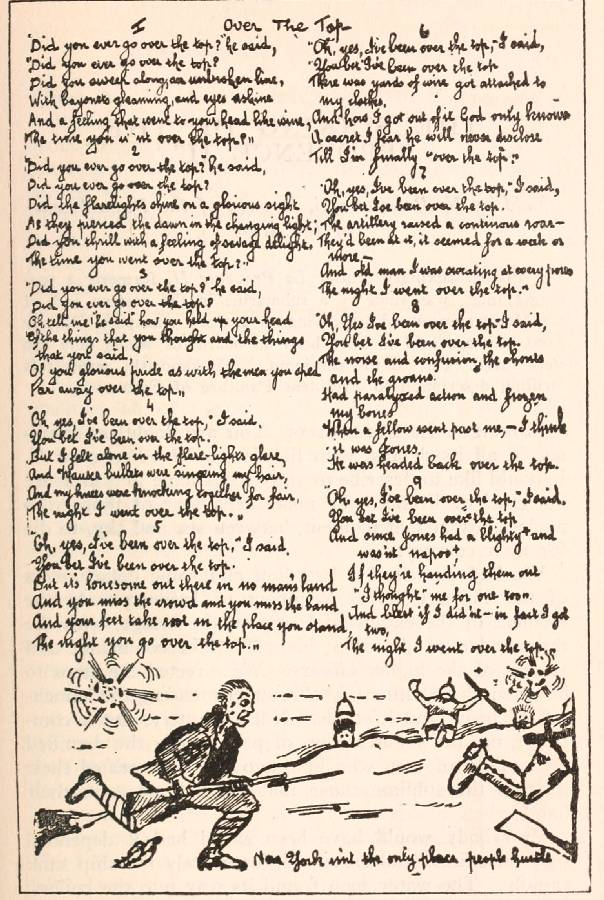 Over The Top
I
"Did you ever go over the top?" he said,
"Did you ever go over the top?
Did you sweep along, an unbroken line,
With bayonets gleaming, and eyes ashine
And a feeling that went to your head like wine,
The time you went over the top?"
2
"Did you ever go over the top?" he said,
Did you ever go over the top?
Did the flarelights shine on a glorious sight
As they pierced the dawn in the changing light;
Did you thrill with a feeling of savage delight,
The time you went over the top?"
3
"Did you ever go over the top?" he said,
Did you ever go over the top?
Oh tell me "he said" how you held up your head
Of the things that you thought and the things
that you said,
Of your glorious pride as with the men you sped
Far away over the top"
4
"Oh yes, I've been over the top," I said.
You bet I've been over the top.
But I felt alone in the flare-lights glare,
And Mauser bullets were singeing my hair,
And my knees were knocking together for fair,
The night I went over the top."
5
"Oh, yes, I've been over the top," I said.
You bet I've been over the top.
But it's lonesome out there in no man's land
And you miss the crowd and you miss the band
And your feet take root in the place you stand,
The night you go over the top."
6
"Oh, yes, I've been over the top," I said,
"You bet I've been over the top
There was yards of wire got attached to
my clothes,
And how I got out of it God only knows
A secret I fear he will never disclose
Till I'm finally "over the top."
7
"Oh, yes, I've been over the top," I said,
You bet I've been over the top.
The artillery raised a continous roar—
They'd been at it, it seemed for a week or
more,—
And old man I was sweating at every pore
The night I went over the top."
8
"Oh, Yes I've been over the top" I said,
You bet I've been over the top
The noise and confusion, the shouts
and the groans.
Had paralyzed action and frozen
my bones
When a fellow went past me, — I think
it was Jones.
He was headed back over the top.
9
"Oh yes, I've been over the top," I said.
You bet I've been over the top
And since Jones had a blighty and
wasn't
If they're handing them out
"I thought" me for one
And blest if I did'nt — in fact I got
two,
The night I went over the top."
New York isn't the only place people hustle